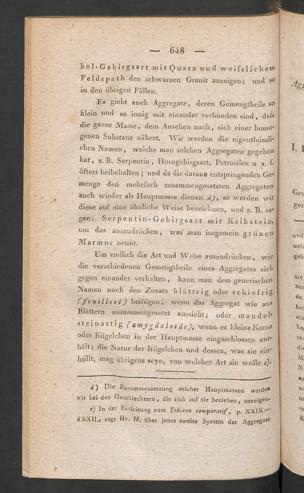 — 648 —
bel-Gebirgsart mit Quarz und weifslichem
Feldspath den schwarzen Granit anzeigen; und so
in den übrigen Fällen.
Es giebt auch Aggregate, deren Gemengtheile so
klein und so innig mit einander verbünden sind, dafs
die ganze Masse, dem Ansehen nach, sich einer homo-
genen Substanz nähert. Wir werden die eigenthümli-
chen Namen, welche man solchen Aggregaten gegeben
hat, z. B. Serpentin, Horngebirgsart, Petrosilex u. s. f.
öfters beibehalten; und da die daraus entspringenden Ge-
menge den mehrfach zusammengesetzten Aggregaten
auch wieder als Hauptmasse dienen d), so werden wir
diese auf eine ähnliche Weise bezeichnen, und z. B. sa-
gen: Serpentin-Gebirgsart mit Kalkstein,
um das auszudrücken, was man insgemein grünen
Marmor nennt.
Um endlich die Art und Weise auszudrücken, wie
die verschiedenen Gemengtheile eines Aggregates sich
gegen einander verhalten, kann man dem generischen
Namen noch den Zusatz blättrig oder schiefrig
(feuilleté) beifügen, wenn das Aggregat wie aus
Blättern zusammengesetzt aussieht; oder mandel-
steinastig (amygdaloïde), wenn es kleine Kerne
oder Kügelchen in der Hauptmasse eingeschlossen ent-
hält; die Natur der Kügelchen und dessen, was sie ein-
hüllt, mag übrigens seyn, von welcher Art sie wolle e).
d) Die Zusammensetzung solcher Hauptmassen werden
wir bei den Geschlechtern, die sich auf sie beziehen, anzeigen.
e) In der Einleitung zum Tableau comparatif, p. XXIX—
XXXII, sagt Hr. H. über jenes zweite System der Aggregate